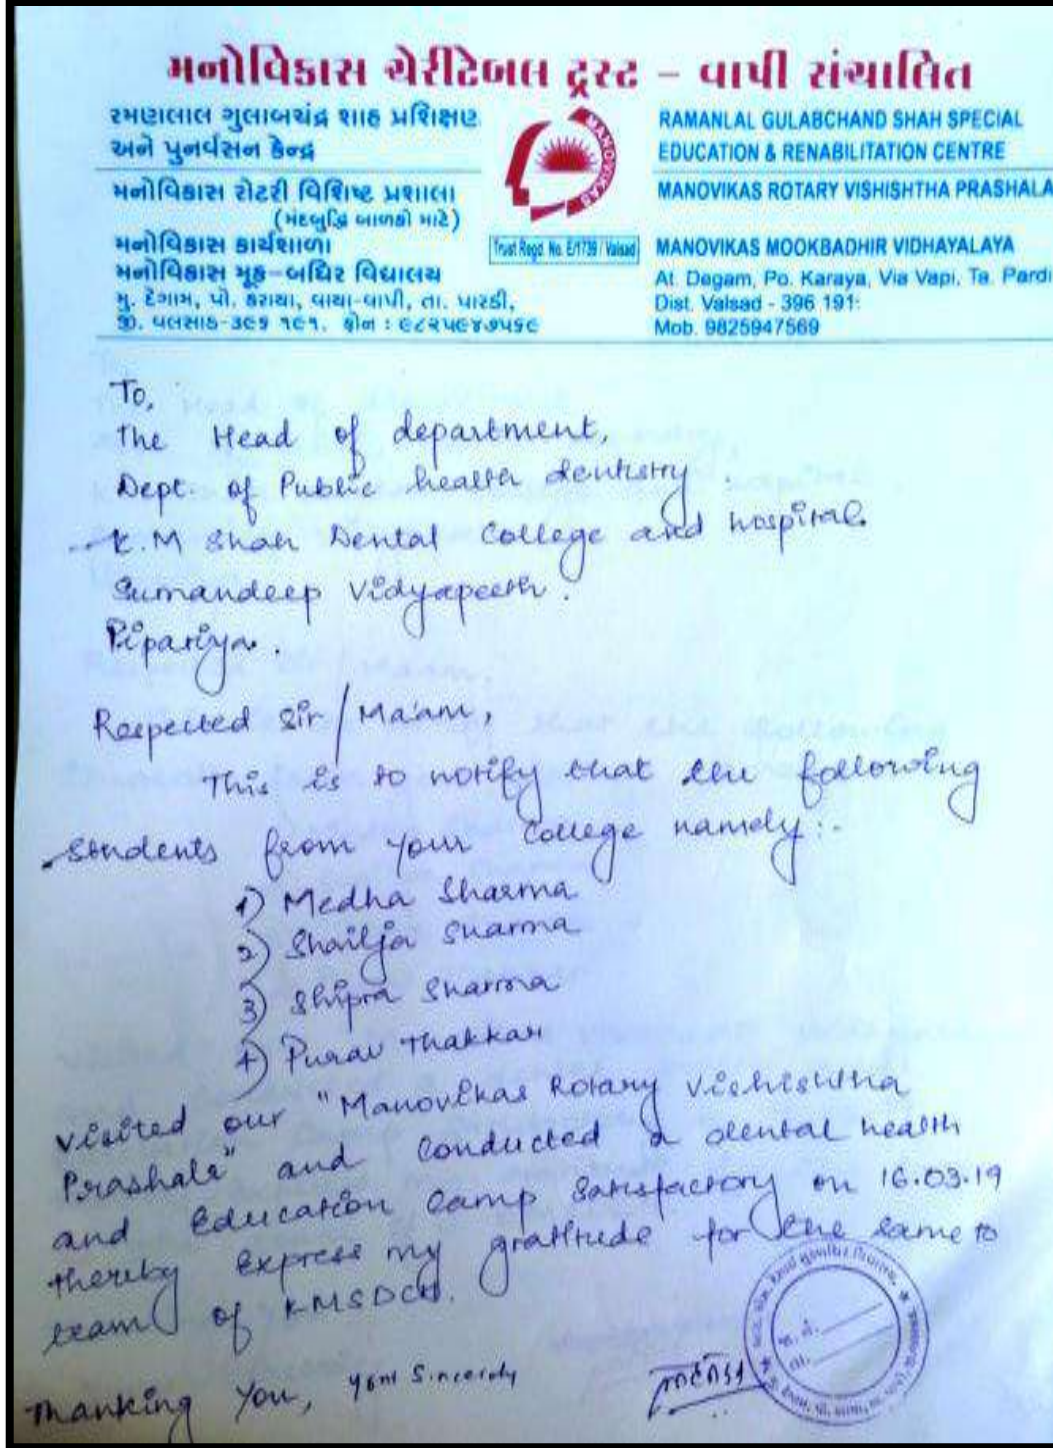 મનોવિકાસ ચેરીટેબલ ટ્રસ્ટ - વાપી સંચાલિત
રમણલાલ ગુલાબચંદ્ર શાહ પ્રશિક્ષણ
અને પુનર્વસન કેન્દ્ર
મનોવિકાસ રોટરી વિશિષ્ટ પ્રશાલા
(મંદબુદ્ધિ બાળકો માટે)
મનોવિકાસ કાર્યશાળા
મનોવિકાસ મૂક-બધિર વિદ્યાલય
મુ. દેગામ, પો. કરાયા, વાયા-વાપી, તા. પારડી,
જી. વલસાડ-૩૯૬ ૧૯૧. ફોન : ૯૮૨૫૯૪૭૫૬૯
MANOVIKAS
Trust Regd. No. E/1739 / Valsad
RAMANLAL GULABCHAND SHAH SPECIAL
EDUCATION & RENABILITATION CENTRE
MANOVIKAS ROTARY VISHISHTHA PRASHALA
MANOVIKAS MOOKBADHIR VIDHAYALAYA
At. Degam, Po. Karaya, Via Vapi, Ta. Pardi
Dist. Valsad - 396 191.
Mob. 9825947569
To,
The Head of department,
Dept. of Public health dentistry.
K.M Shah Dental College and hospital.
Sumandeep Vidyapeeth.
Pipariya.
Respected Sir/Ma'am,
This is to notify that the following
students from your College namely:-
1) Medha Sharma
2) Shailja Sharma
3) Shipra Sharma
4) Purav Thakkar
visited our "Manovikas Rotary Vishishtha
Prashala" and conducted a dental health
and Education Camp satisfactory on 16.03.19
thereby express my gratitude for the same to
team of KMSDCH.
Thanking You, Your Sincerely